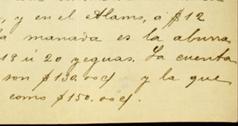 , y en el Alamo, á $12
a manada es la aburra,
18 ú 20 yeguas. La cuenta
son $130.00cf. y la que
como $150.00cf.